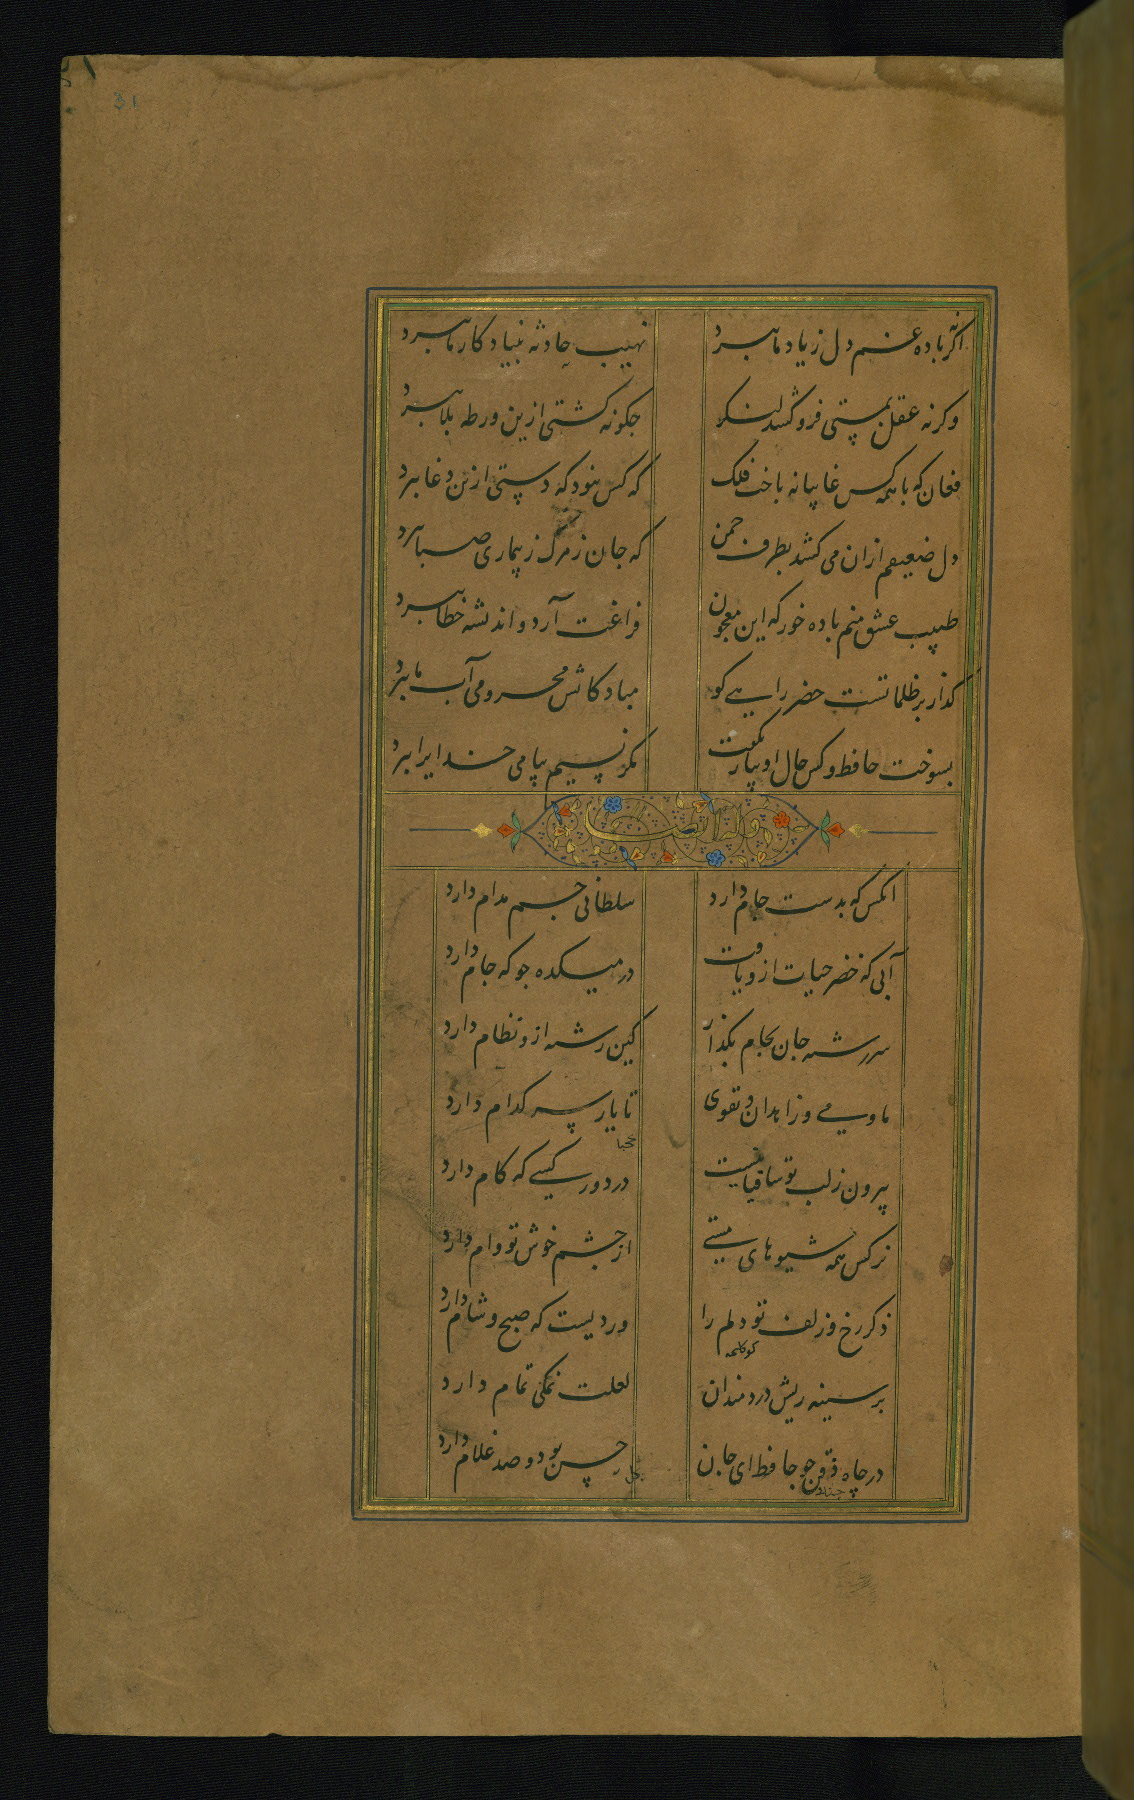 31
اکر نه باده غم دل زیاد ما ببرد نهیب حادثه بنیاد کار ما ببرد
وکر نه عقل بمستی فروکشد لنکر جکونه کشتی ازین ورطه بلا ببرد
فغان که با همه کس غایبانه باخت فلک که کس نبود که دستی ازین دغا ببرد
دل ضعیفم ازان می کشد بطرف جمن که جان ز مرک ز بیماری صبا ببرد
طبیب عشق منم باده خور که این معجون فراغت آرد و اندیشه خطا ببرد
کذار بر ظلماتست خضر راهی کو مباد کاتش محرومی آب ما ببرد
بسوخت حافظ و کس حال او بیار نکفت مکر نسیم پیامی خدایرا ببرد
وله ایضا
انکس که بدست جام دارد سلطانی جم مدام دارد
آبی که خضر حیات ازو یافت در میکده جو که جام دارد
سررشته جان بجام بکذار کین رشته ازو نظام دارد
ما و می و زاهدان و تقوی تا یار سر کدام دارد
بیرون ز لب تو ساقیا نیست در دور کسی که کام دارد
نرکس همه شیوهای مستی از جشم خوش تو وام دارد
ذکر رخ و زلف تو دلم را وردیست که صبح و شام دارد
بر سینه ریش دردمندان لعلت نمکی تمام دارد
در جاه ذقن جو حافظ ای جان حسن تو دو صد غلام دارد